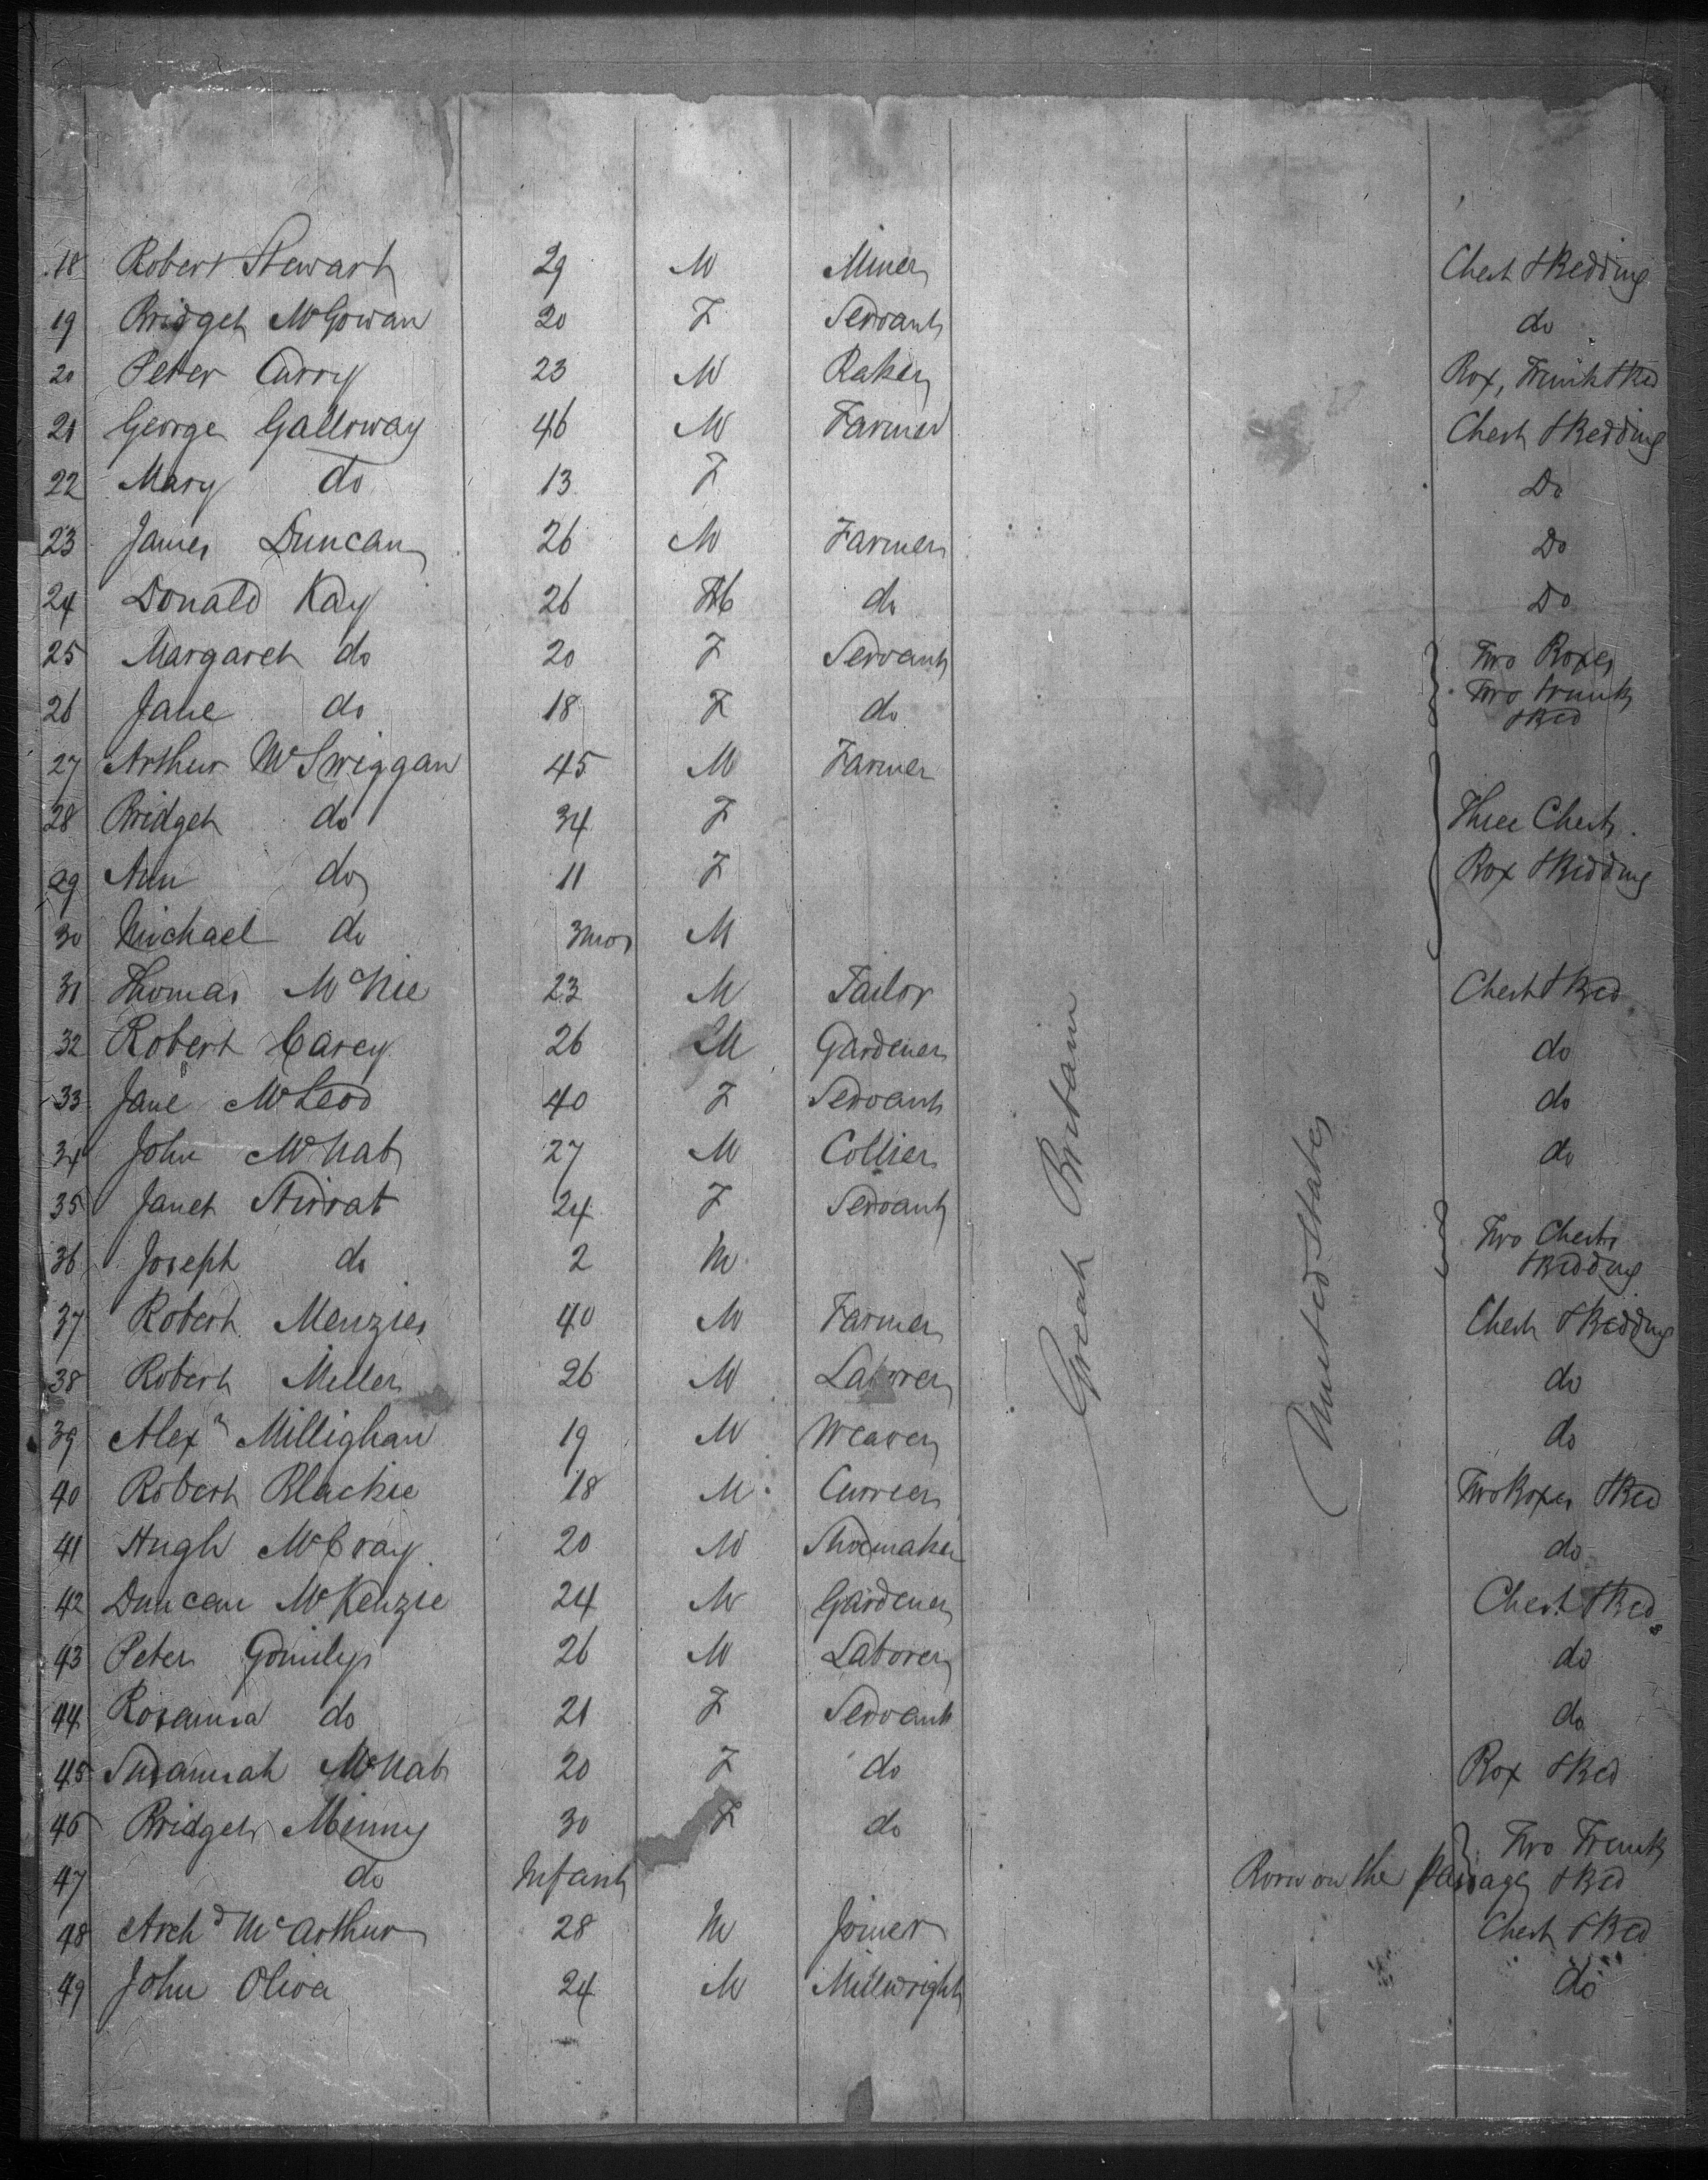 18 Robert Stewart 29 M Miner Chest & Bedding
19 Bridget McGowan 20 F Servant do
20 Peter Curry 23 M Baker Box, Trunk & Bed
21 George Galloway 46 M Farmer Chest & Bedding
22 Mary do 13 F Do
23 James Duncan 26 M Farmer Do
24 Donald Kay 26 M do Do
25 Margaret do 20 F Servant Two Boxes
26 Jane do 18 F do Two Trunks
& Bed
27 Arthur McSwiggan 45 M Farmer
28 Bridget do 34 F Three Chests
29 Ann do 11 F Box & Bedding
30 Michael do 3 mos M
31 Thomas McNie 23 M Tailor Chest & Bed
32 Robert Carey 26 M Gardener do
33 Jane McLeod 40 F Servant do
34 John McNab 27 M Collier do
35 Janet Stirrat 24 F Servant Two Chests
36 Joseph do 2 M & Bedding
37 Robert Menzies 40 M Farmer Chest & Bedding
38 Robert Miller 26 M Laborer do
39 Alexr Millighan 19 M Weaver do
40 Robert Blackie 18 M Currier Two Boxes & Bed
41 Hugh McCray 20 M Shoemaker do
42 Duncan McKenzie 24 M Gardener Chest & Bed
43 Peter 26 M Laborer do
44 Rosanna do 21 F Servant do
45 Susannah McNab 20 F do Box & Bed
46 Bridget Minny 30 F do Two Trunks
47 do Infant Born on the passage & Bed
48 Archd McArthur 28 M Joiner Chest & Bed
49 John Oliva 24 M Millwright do
Great Britain
United States